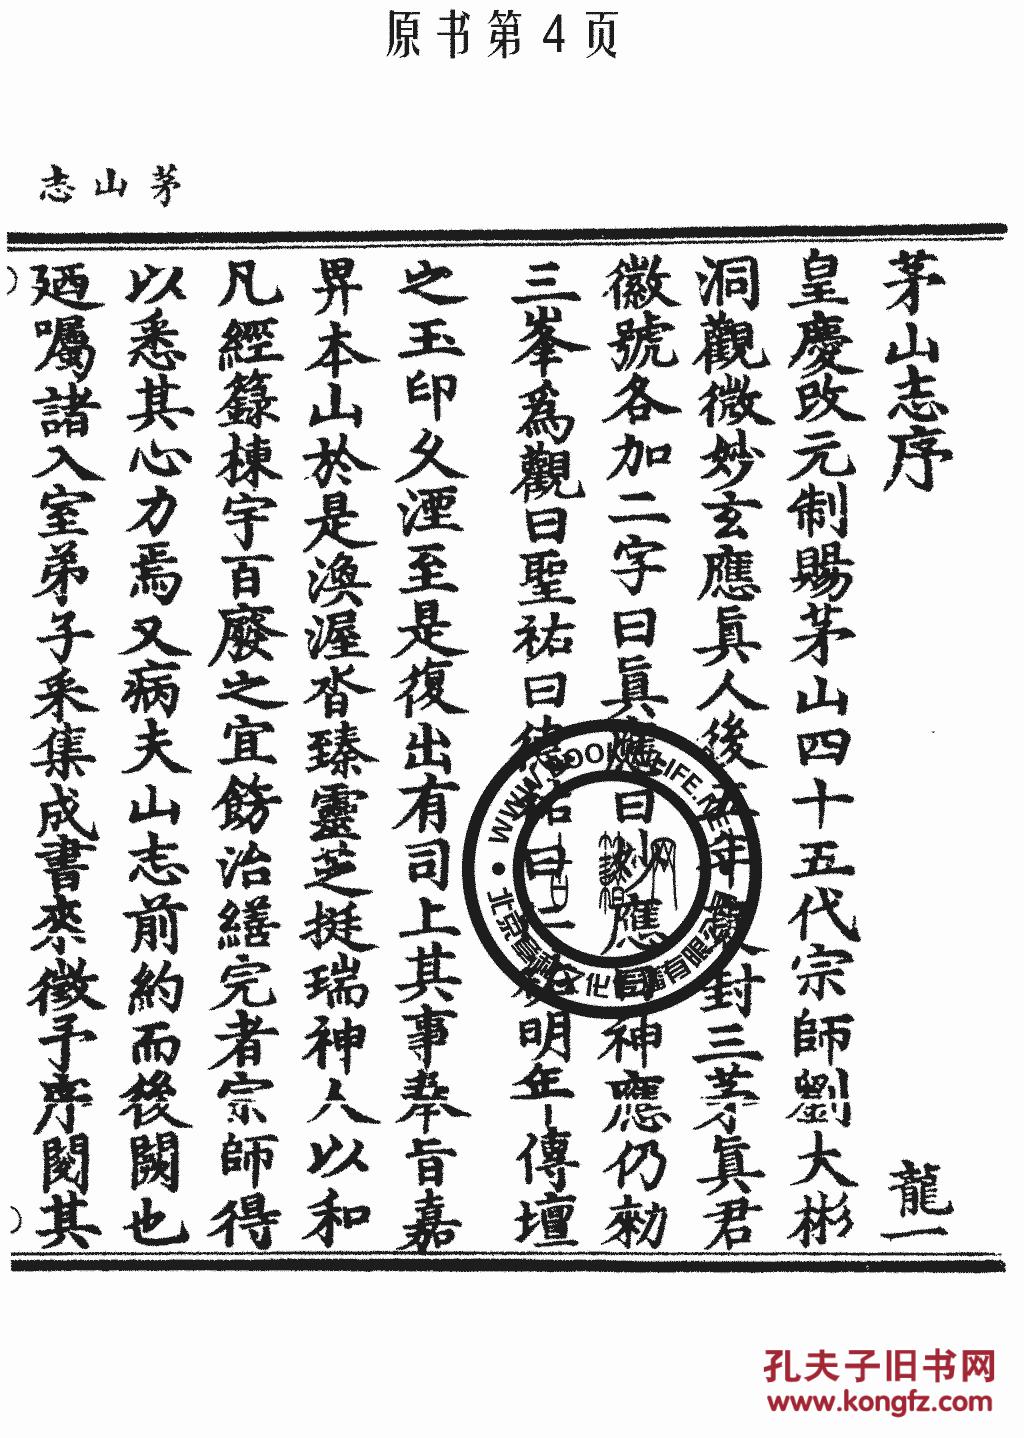 原书第4页
茅山志
茅山志序
龍一
皇慶改元制賜茅山四十五代宗師劉大彬
洞觀微妙玄應真人後五年詔封三茅真君
徽號各加二字曰真應曰妙應曰神應仍勑
三峯爲觀曰聖祐曰德祐曰仁祐明年傳壇
之玉印久湮至是復出有司上其事奉旨嘉
畀本山於是渙渥沓臻靈芝挺瑞神人以和
凡經籙棟宇百廢之宜飭治繕完者宗師得
以悉其心力焉又病夫山志前約而後闕也
廼囑諸入室弟子采集成書來徵予序閱其
WWW.BOOK
LIFE.NET
孔夫子旧书网
www.kongfz.com